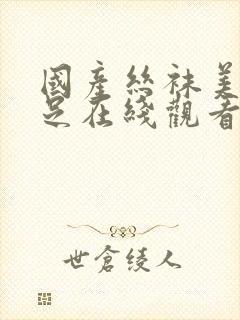 國產絲袜美
足在綫觀看
世倉綾人